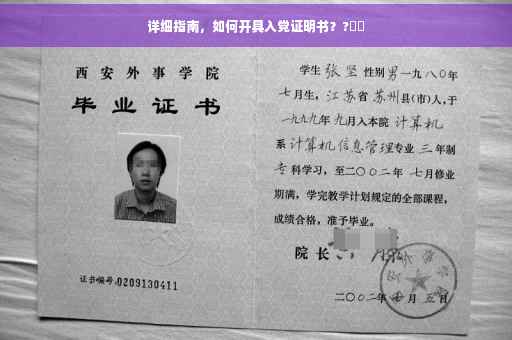 详细指南，如何开具入党证明书？?
西安外事学院
毕业证书
证书编号:0209130411
学生 张坚 性别 男 一九八〇年
七月生，江苏省 苏州县(市)人，于
一九九九年 九月入本院 计算机
系 计算机信息管理专业 三 年制
专 科学习，至二〇〇二年 七月修业
期满，学完教学计划规定的全部课程，
成绩合格，准予毕业。
院 长
二〇〇二年 七 月 五 日